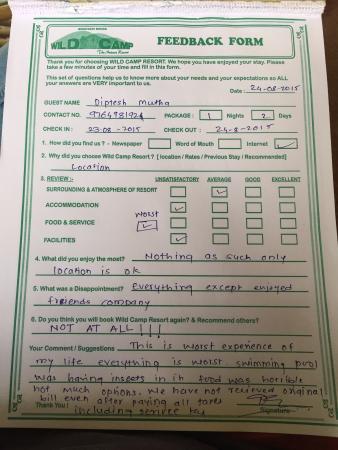 WILD CAMP
FEEDBACK FORM
Thank you for choosing WILD CAMP RESORT. We hope you have enjoyed your stay. Please
take a few minutes of your time and fill in this form.
This set of questions help us to know more about your needs and your expectations so ALL
your answers are VERY important to us.
Date : 24-08-2015
GUEST NAME Diptesh Mutha
CONTACT NO. PACKAGE : 1 Nights 2 Days
CHECK IN : 23-08-2015 CHECK OUT : 24-8-2015
1. How did you find us? - Newspaper Word of Mouth Internet ✓
2. Why did you choose Wild Camp Resort? [ location / Rates / Previous Stay / Recommended]
Location
3. REVIEW :- UNSATISFACTORY AVERAGE GOOD EXCELLENT
SURROUNDING & ATMOSPHERE OF RESORT ✓
ACCOMMODATION ✓
worst
FOOD & SERVICE ✓
FACILITIES ✓
4. What did you enjoy the most? Nothing as such only
location is ok
5. What was a Disappointment? Everything except enjoyed
friends company
6. Do you think you will book Wild Camp Resort again? & Recommend others?
NOT AT ALL !!!
Your Comment / Suggestions This is worst experience of
my life everything is worst swimming pool
was having insects in it food was horrible
not much options. We have not recieved original
bill even after paying all taxes
Thank You ! including service tax Signature